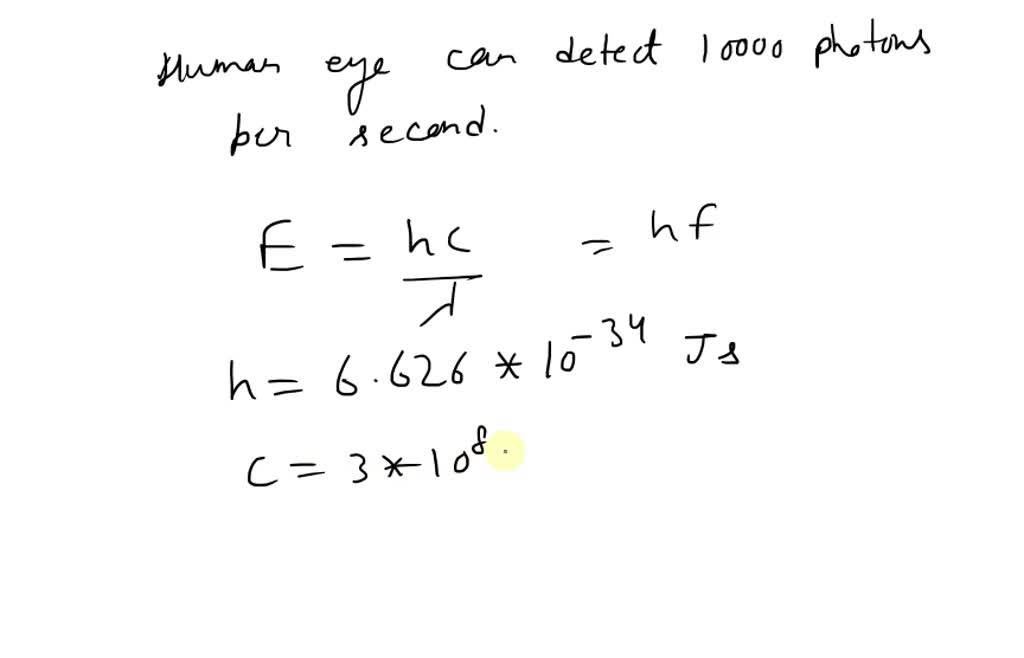 Human eye can detect 10000 photons
per second.
E = hc / λ = hf
h = 6.626 * 10^-34 Js
c = 3 * 10^8 .